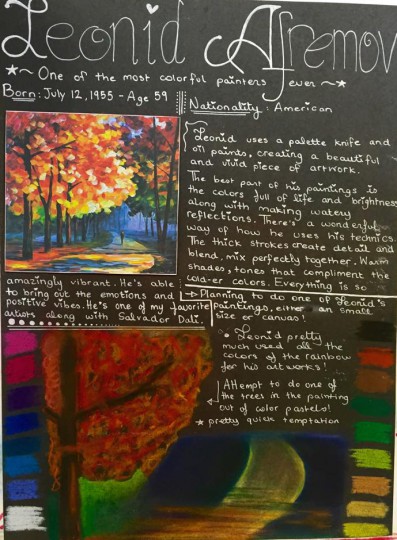 Leonid Afremov
★~ One of the most colorful painters ever ~★
Born: July 12, 1955 - Age 59
Nationality: American
Leonid uses a palette knife and
oil paints, creating a beautiful
and vivid piece of artwork.
The best part of his paintings is
the colors full of life and brightness
along with making watery
reflections. There's a wonderful
way of how he uses his technics.
The thick strokes create detail and
blend, mix perfectly together. Warm
shades, tones that compliment the
cold-er colors. Everything is so
amazingly vibrant. He's able
to bring out the emotions and
positive vibes. He's one of my favorite
artists along with Salvador Dali.
→ Planning to do one of Leonid's
paintings, either an small
size or canvas!
• Leonid pretty
much used all the
colors of the rainbow
for his artworks!
Attempt to do one of
the trees in the painting
out of color pastels!
★ pretty quick temptation